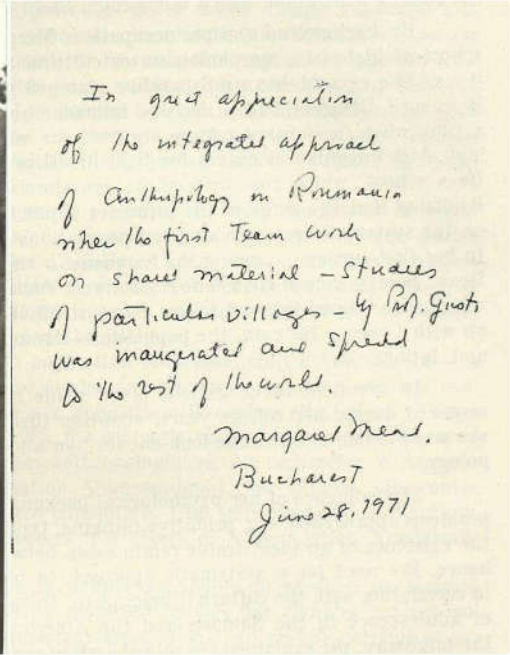 In great appreciation
of the integrated approach
of Anthropology in Roumania
where the first Team work
on shared material – Studies
of particular villages – by Prof. Gusti
was inaugerated and spread
to the rest of the world.
Margaret Mead.
Bucharest
June 28, 1971